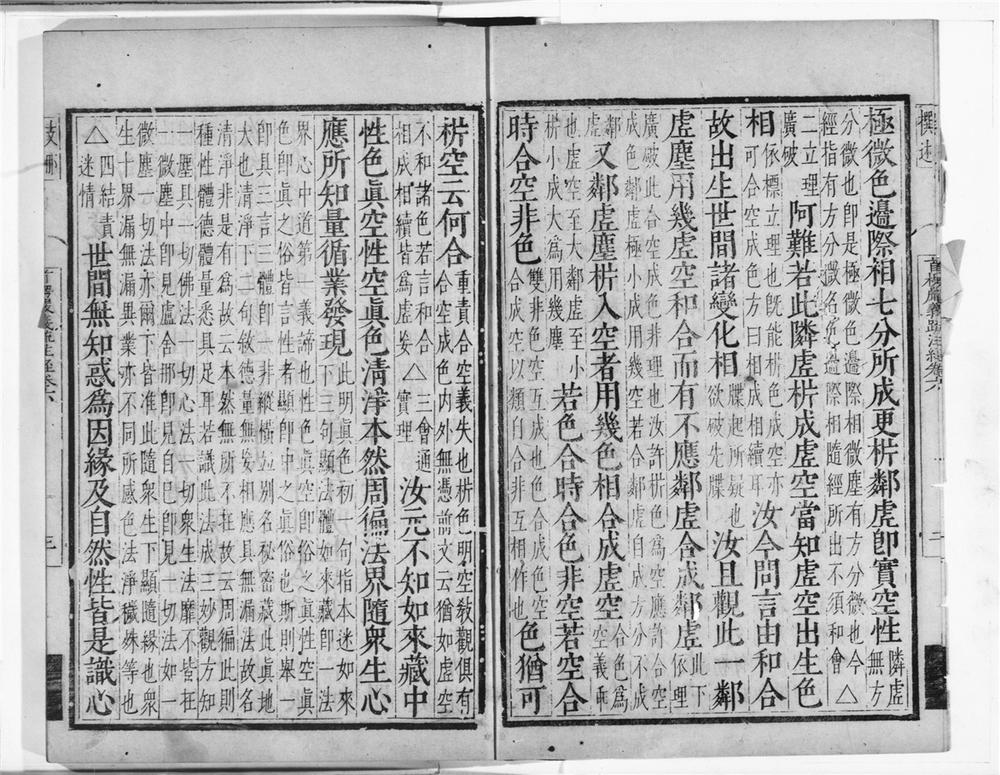 撰述
首楞嚴義疏注經卷六
二
極微色邊際相七分所成更析鄰虛卽實空性隣虛無方
分微也卽是極微色邊際相微塵有方分微也今△
經指有方分微名為邊際相隨經所出不須和會
二立理廣破阿難若此隣虛析成虛空當知虛空出生色
相依標立理也旣能析色成空亦可合空成色方曰相成相續耳汝今問言由和合
故出生世間諸變化相牒起所疑也欲破先牒汝且觀此一鄰
虛塵用幾虛空和合而有不應鄰虛合成鄰虛此下依理
廣破此合空成色無理也汝許析色為空應許合空
成色鄰虛極小成用幾空若合鄰虛自成方分不成
鄰虛又鄰虛塵析入空者用幾色相合成虛空合色為空義
也虛空至大鄰虛至小析小成大為用幾塵若色合時合色非空若空合
時合空非色雙非色空互成也色合成色空合成空以類自合非互相作也色猶可
析空云何合重責合空義失也析色明空敎觀俱有合空成色內外無憑前文云猶如虛空
不和諸色若言和合相成相續皆為虛妄△三會通實理汝元不知如來藏中
性色眞空性空眞色清淨本然周徧法界隨衆生心
應所知量循業發現此明眞色初一句指本迷如來下三句顯法體如來藏卽一法
界心中道第一義諦也性色眞空性空眞
色卽眞之俗皆言性者顯卽中之眞俗也斯則舉一
卽具三言三卽一非縱橫並別名秘密藏此眞地
大也清淨下二句敘德量無妄相應具無漏法故名
清淨非是有為故云本然無所不在故云周徧此則
種性體德體量悉具足耳若識此法成三妙觀方知
一塵具一切佛法一切心法一切衆生法靡不皆在
一微塵中卽見盧舍那卽見自巳卽見一切法如一
微塵一切法亦爾下皆准此隨衆生下顯隨緣也衆
生十界漏無漏異業亦不同所感色法淨穢殊等也
△四結責迷情世間無知惑為因緣及自然性皆是識心
首楞嚴義疏注經卷六
三